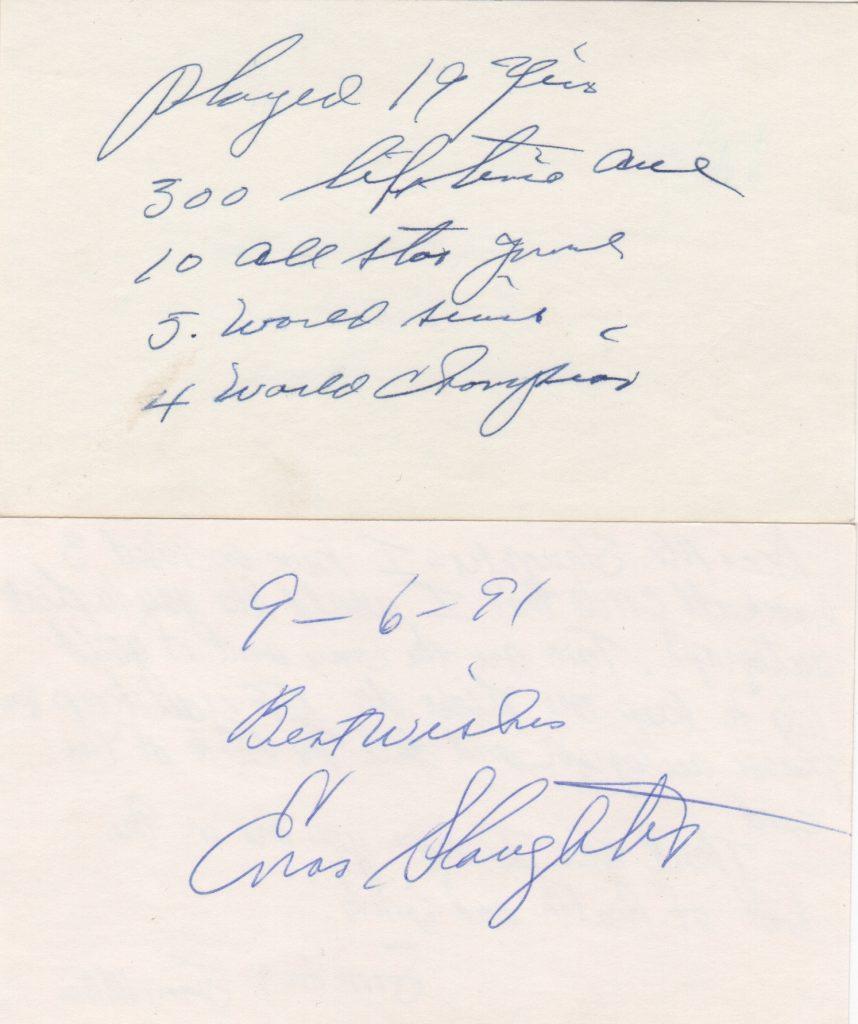 Played 19 Years
300 lifetime ave
10 all star game
5. World series
4 World Champion
9-6-91
Best wishes
Enos Slaughter